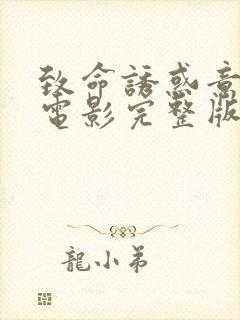 致命誘惑意
電影完整版
龍小弟